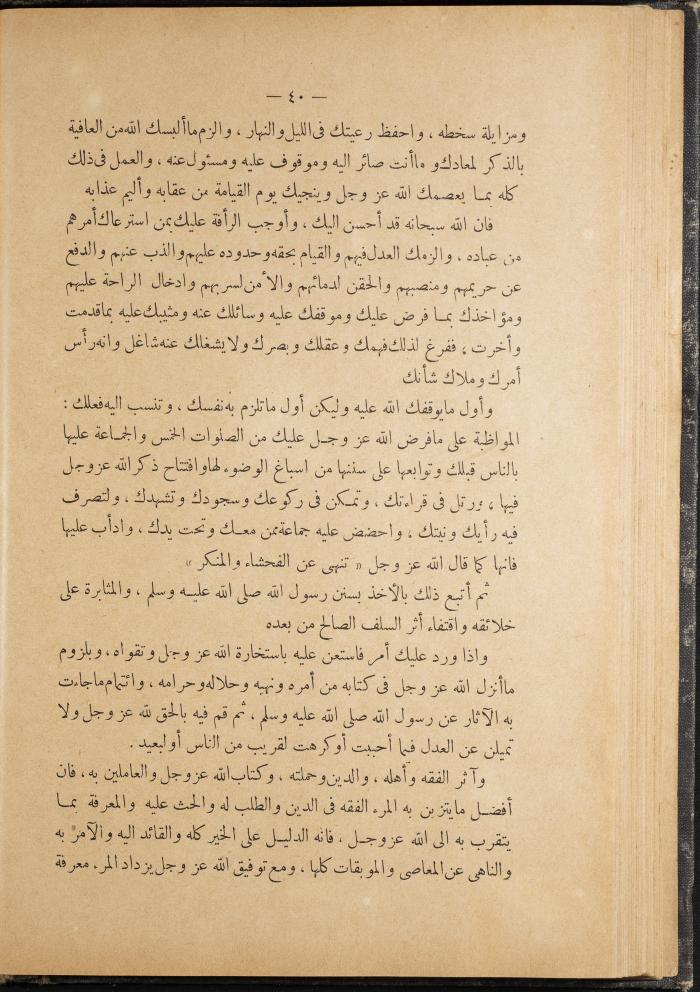 — ٤٠ —
ومزايلة سخطه ، واحفظ رعيتك فى الليل والنهار ، والزم ما ألبسك الله من العافية
بالذكر لمعادك وما أنت صائر اليه وموقوف عليه ومسئول عنه ، والعمل فى ذلك
كله بمـا يعصمك الله عز وجل وينجيك يوم القيامة من عقابه وأليم عذابه
فان الله سبحانه قد أحسن اليك ، وأوجب الرأفة عليك بمن استرعاك أمرهم
من عباده ، والزمك العدل فيهم والقيام بحقه وحدوده عليهم والذب عنهم والدفع
عن حريمهم ومنصبهم والحقن لدمائهم والأمن لسربهم وادخال الراحة عليهم
ومؤاخذك بمـا فرض عليك وموقفك عليه وسائلك عنه ومثيبك عليه بما قدمت
وأخرت ، ففرغ لذلك فهمك وعقلك وبصرك ولا يشغلك عنه شاغل وانه رأس
أمرك وملاك شأنك
وأول ما يوقفك الله عليه وليكن أول ما تلزم به نفسك ، وتنسب اليه فعلك :
المواظبة على ما فرض الله عز وجـل عليك من الصلوات الخمس والجمـاعة عليها
بالناس قبلك وتوابعها على سننها من اسباغ الوضوء لها وافتتاح ذكر الله عز وجل
فيها ، ورتل فى قراءتك ، وتمـكن فى ركوعك وسجودك وتشهدك ، ولتصرف
فيه رأيك ونيتك ، واحضض عليه جماعة ممن معـك وتحت يدك ، وادأب عليها
فانها كما قال الله عز وجل « تنهى عن الفحشاء والمنكر »
ثم أتبع ذلك بالأخذ بسنن رسول الله صلى الله عليـه وسلم ، والمثابرة على
خلائقه واقتفاء أثر السلف الصالح من بعده
واذا ورد عليك أمر فاستعن عليه باستخارة الله عز وجل وتقواه ، وبلزوم
ما أنزل الله عز وجل فى كتابه من أمره ونهيه وحلاله وحرامه ، وائتمام ما جاءت
به الآثار عن رسول الله صلى الله عليه وسلم ، ثم قم فيه بالحق لله عز وجل ولا
تميلن عن العدل فيما أحببت أو كرهت لقريب من الناس أو لبعيد .
وآثر الفقه وأهله ، والدين وحملته ، وكتاب الله عز وجل والعاملين به ، فان
أفضـل ما يتزين به المرء الفقه فى الدين والطلب له والحث عليه والمعرفة بمـا
يتقرب به الى الله عز وجـل ، فانه الدليـل على الخير كله والقائد اليه والآمر به
والناهى عن المعاصى والموبقات كلها ، ومع توفيق الله عز وجل يزداد المرء معرفة